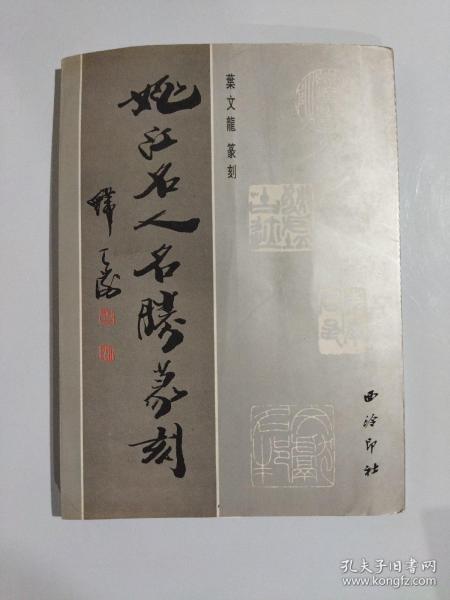 姚江名人名勝篆刻
葉文龍 篆刻
西泠印社
孔夫子旧书网
www.kongfz.com